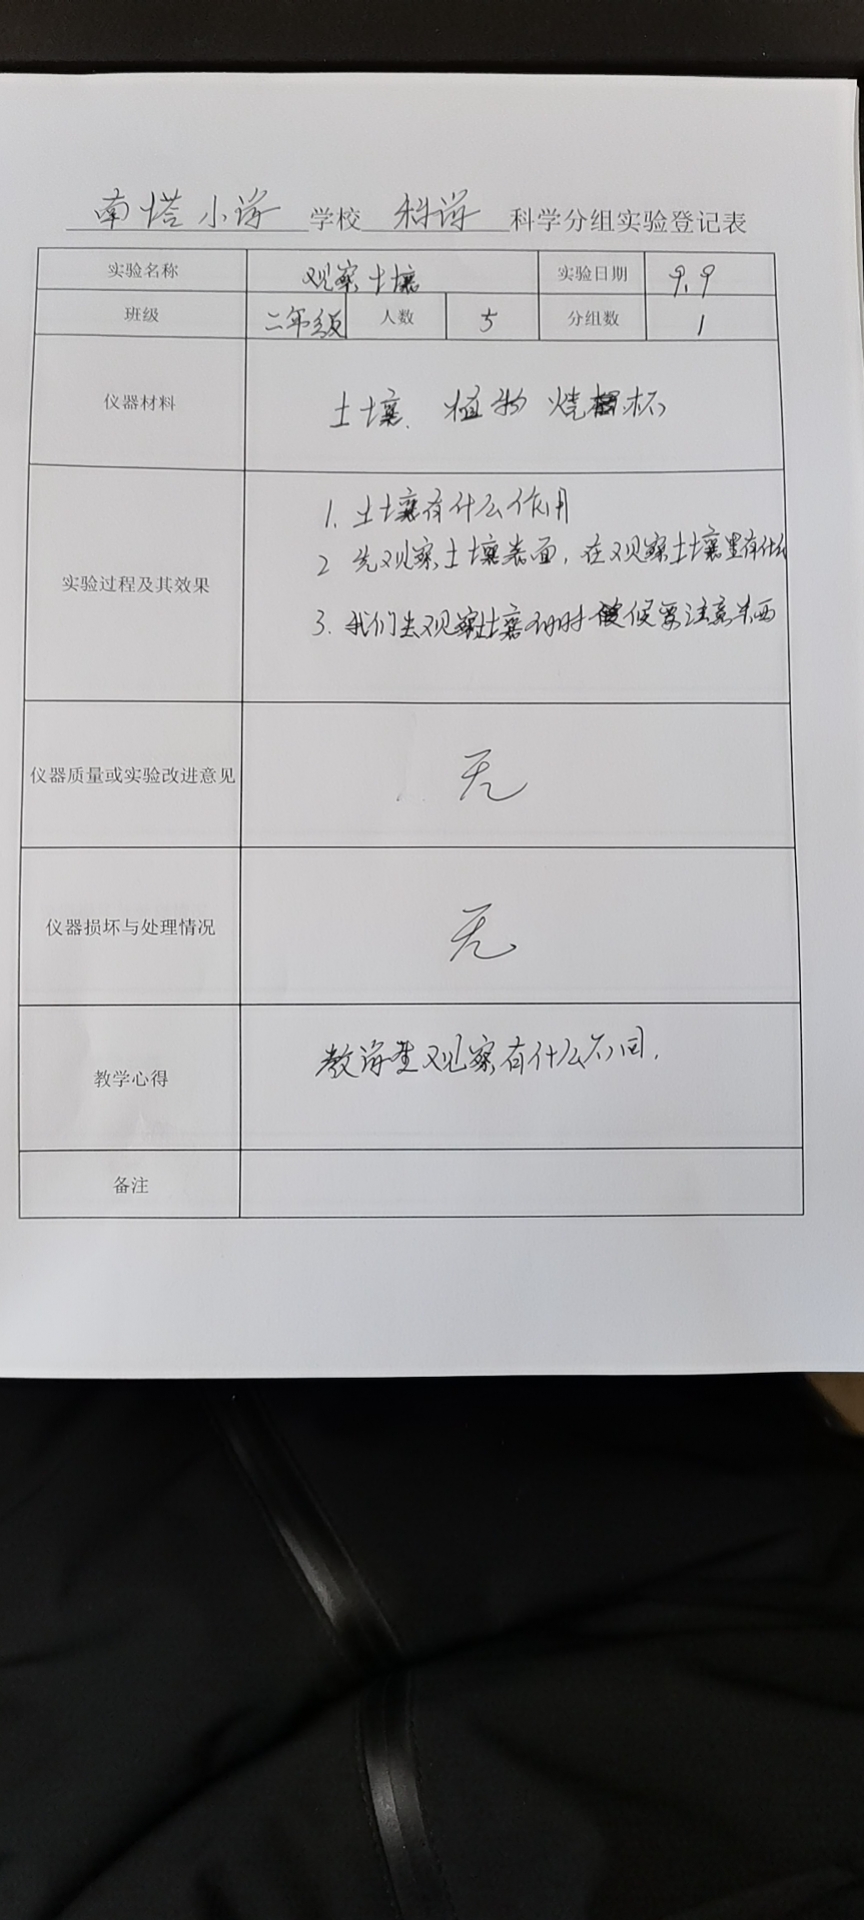 南塔小学学校科学科学分组实验登记表
实验名称 观察土壤 实验日期 9.9
班级 二年级 人数 5 分组数 1
仪器材料 土壤、植物 烧杯
实验过程及其效果
1. 土壤有什么作用
2 先观察土壤表面,在观察土壤里有什么
3. 我们去观察土壤的时候要注意东西
仪器质量或实验改进意见 无
仪器损坏与处理情况 无
教学心得 教学生观察有什么不同.
备注